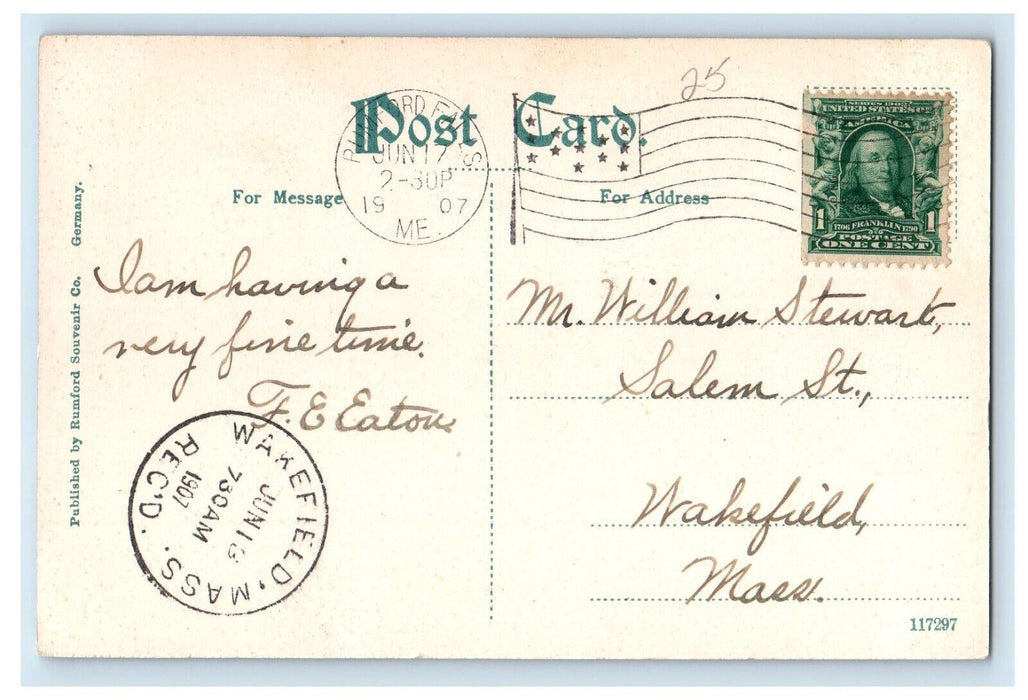 25
Post Card.
RUMFORD FALLS
JUN 17
2-30P
19 07
ME.
SERIES 1902
UNITED STATES OF
AMERICA
1 1
1706 FRANKLIN 1790
POSTAGE
ONE CENT
For Message
For Address
Published by Rumford Souvenir Co. Germany.
I am having a
very fine time.
F. E Eaton.
WAKEFIELD, MASS.
JUN 18
730AM
1907
REC'D.
Mr. William Stewart,
Salem St.,
Wakefield,
Mass.
117297